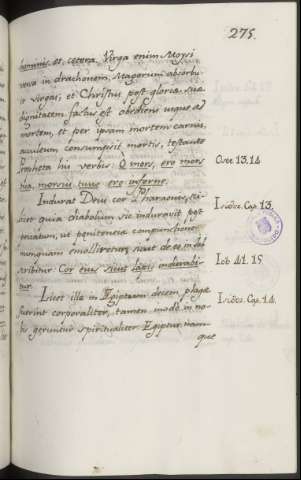 275.
hominis, et cetera. Virga enim Moysi
versa in drachonem, Magorum absorbu-
it virgas, et Christus post gloriae suae
dignitatem factus est obediens usque ad
mortem, et per ipsam mortem carnis,
aculeum consumpsit mortis, testante
Propheta his verbis: O mors, ero mors
tua, morsus tuus ero inferne.
Osee 13.14
Indurat Deus cor Pharaonis, sci-
licet quia diabolum sic induravit post
peccatum, ut penitencia compunctione
nunquam emolliretur, sicut de eo in Iob
scribitur: Cor eius sicut lapis indurabi-
tur.
Isidor. Cap. 13.
Iob 41. 15.
Licet illae in Egiptum decem plagae
fuerint corporaliter, tamen modo in no-
bis geruntur spiritualiter. Egiptus nam-
que
Isidor. Cap. 14.